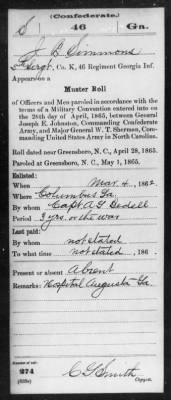 (Confederate.)
S 46 Ga.
J B Simmons
5th Sergt, Co. K, 46 Regiment Georgia Inf.
Appears on a
Muster Roll
of Officers and Men paroled in accordance with the
terms of a Military Convention entered into on
the 26th day of April, 1865, between General
Joseph E. Johnston, Commanding Confederate
Army, and Major General W. T. Sherman, Com-
manding United States Army in North Carolina.
Roll dated near Greensboro, N. C., April 28, 1865.
Paroled at Greensboro, N. C., May 1, 1865.
Enlisted:
When Mar 4, 1862.
Where Columbus Ga
By whom Capt A G Bedell
Period 3 yrs. or the war
Last paid:
By whom not stated
To what time not stated, 186 .
Present or absent Absent
Remarks: Hospital Augusta Ga.
Number of roll:
274
C G Smith
Copyist.